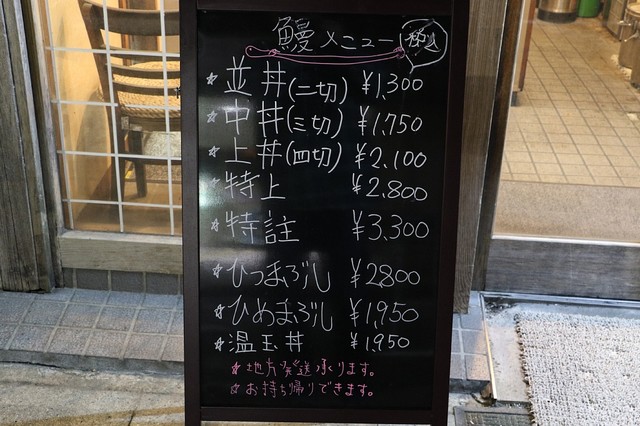 鰻メニュー 税込
☆並丼(二切) ¥1,300
☆中丼(三切) ¥1,750
☆上丼(四切) ¥2,100
☆特上 ¥2,800
☆特註 ¥3,300
☆ひつまぶし ¥2800
☆ひめまぶし ¥1,950
☆温玉丼 ¥1,950
☆地方発送承ります。
☆お持ち帰りできます。